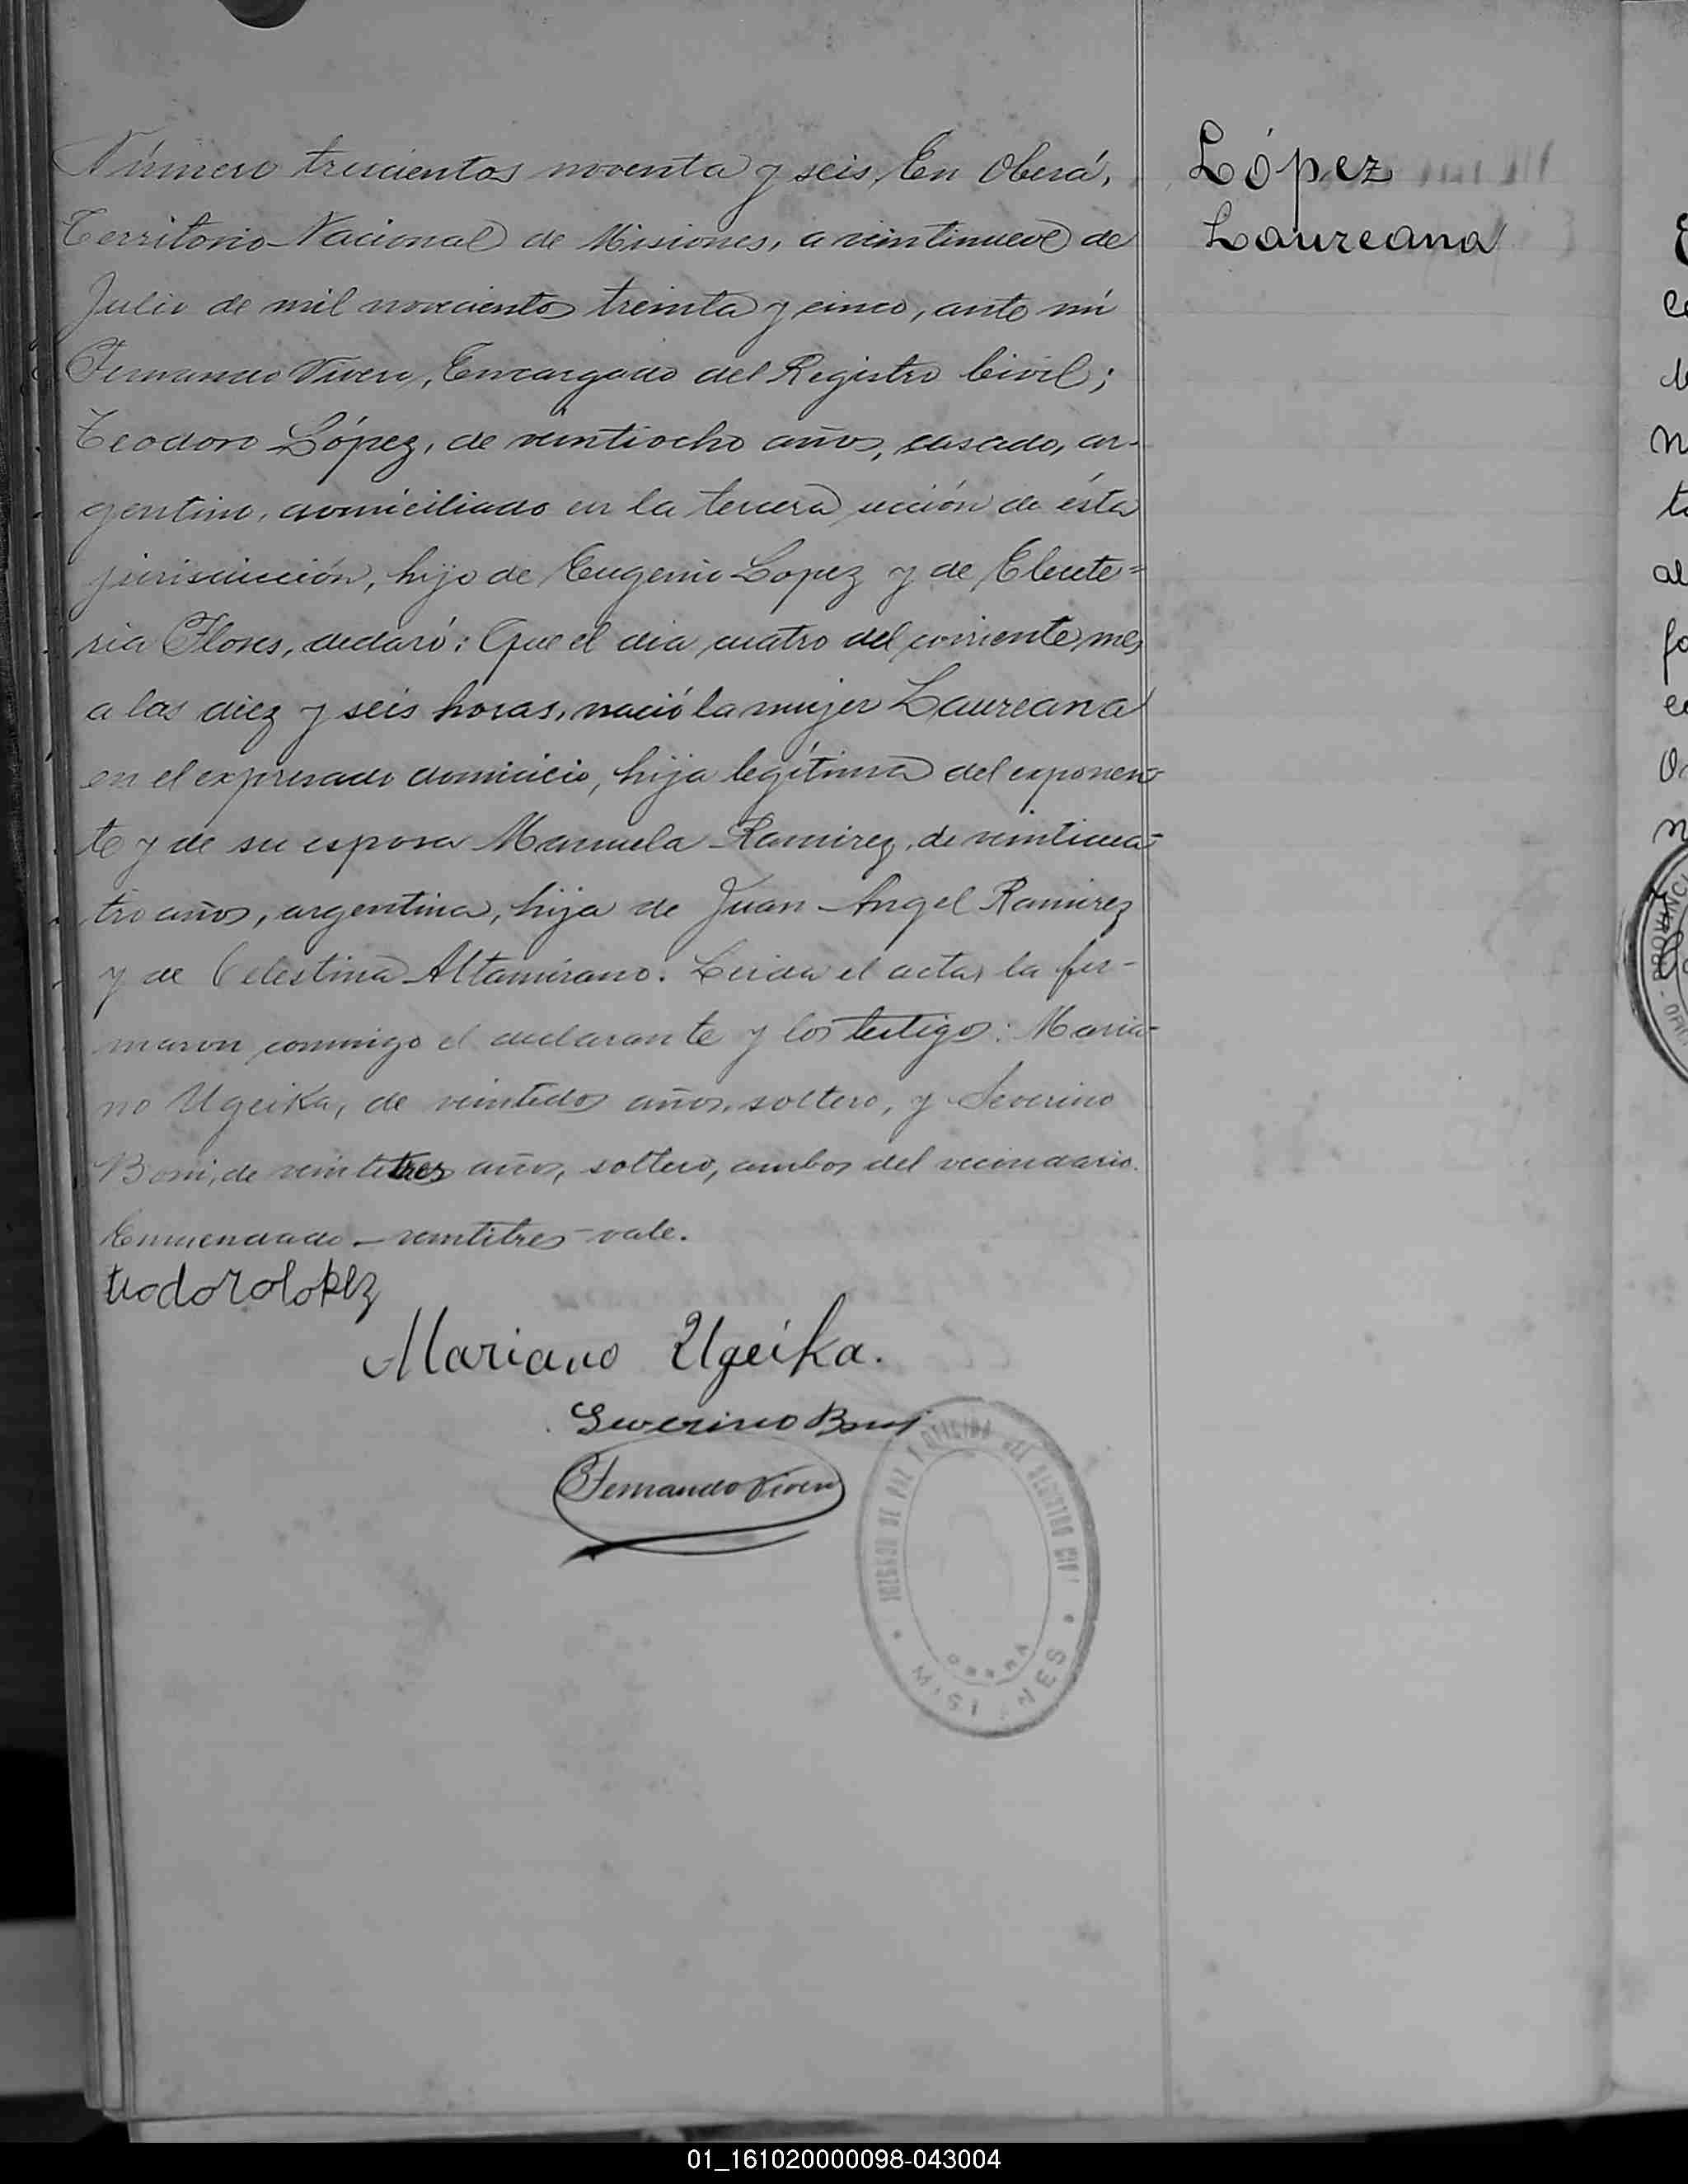 Número trescientos noventa y seis. En Oberá,
Territorio Nacional de Misiones, a veintinueve de
Julio de mil novecientos treinta y cinco, ante mí
Fernando Vivero, Encargado del Registro Civil;
Teodoro López, de veintiocho años, casado, ar-
gentino, domiciliado en la tercera sección de ésta
jurisdicción, hijo de Eugenio Lopez y de Eleute=
ria Flores, declaró: Que el dia cuatro del corriente mes
a las diez y seis horas, nació la mujer Laureana
en el expresado domicilio, hija legítima del exponen-
te y de su esposa Manuela Ramirez, de veinticua-
tro años, argentina, hija de Juan Angel Ramirez
y de Celestina Altamirano. Leida el acta, la fir-
maron conmigo el declarante y los testigos: Maria-
no Ugeika, de veintidos años, soltero, y Severino
Boni, de veintitres años, soltero, ambos del vecindario.
Enmendado - veintitres - vale.
López
Laureana
teodoro lopez
Mariano Ugeika.
Severino Boni
Fernando Vivero
JUZGADO DE PAZ Y OFICINA DEL REGISTRO
OBERA
01_161020000098-043004